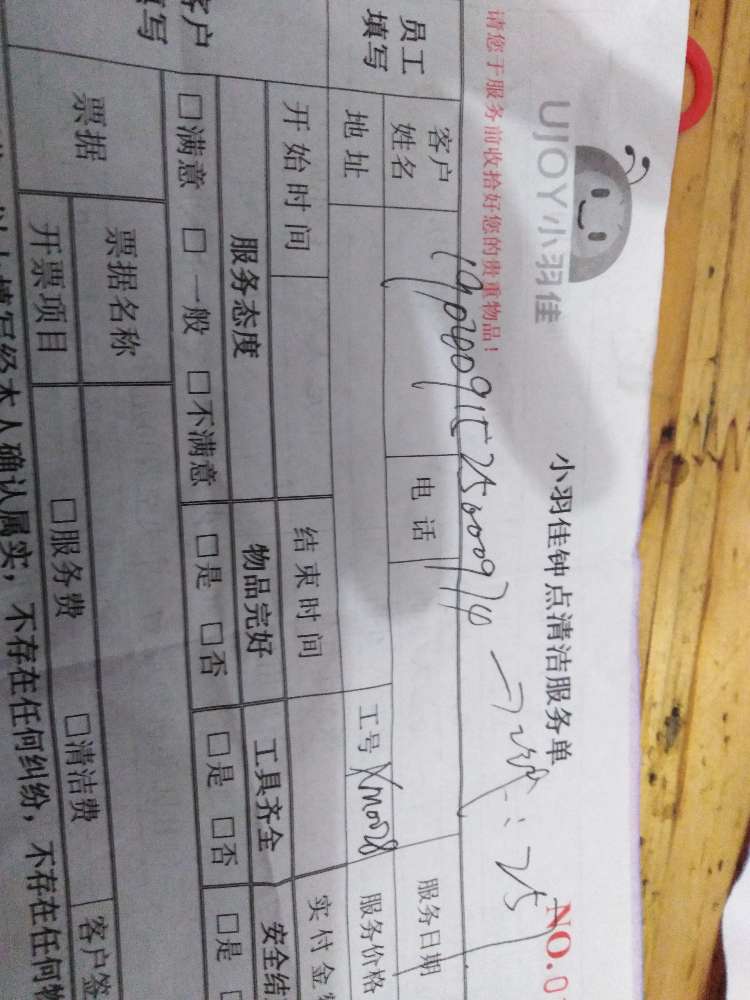 UJOY小羽佳
小羽佳钟点清洁服务单
NO.0
请您于服务前收拾好您的贵重物品！
员工填写
客户姓名
电话
服务日期
地址
工号 Xm0028
服务价格
开始时间
结束时间
实付金
客户填写
服务态度
物品完好
工具齐全
安全结
□满意 □一般 □不满意
□是 □否
□是 □否
□是
票据
票据名称
开票项目
□服务费
□清洁费
客户签
以上填写经本人确认属实，不存在任何纠纷，不存在任何物